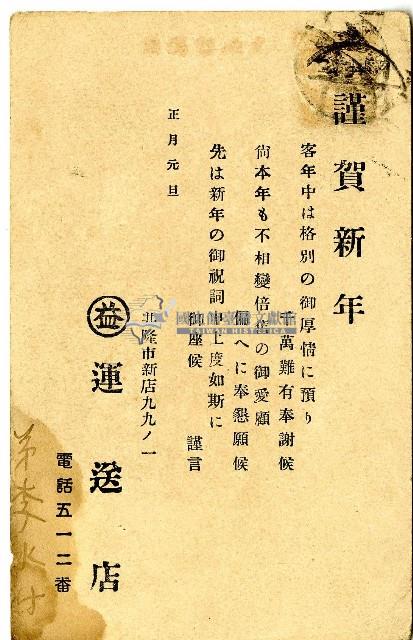 謹賀新年
客年中は格別の御厚情に預り
千萬難有奉謝候
尙本年も不相變倍舊の御愛顧
偏へに奉懇願候
先は新年の御祝詞申上度如斯に
御座候 謹言
正月元旦
基隆市新店九九ノ一
益運送店
電話五一二番